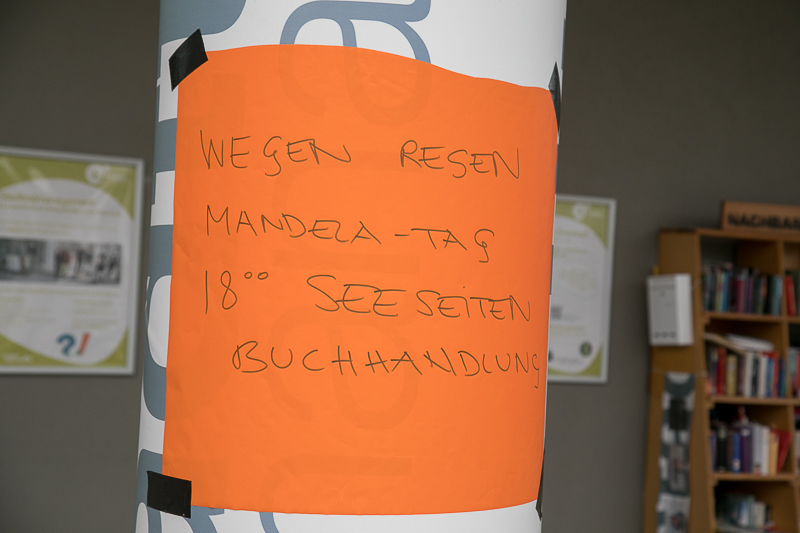 WEGEN REGEN
MANDELA-TAG
18⁰⁰ SEESEITEN
BUCHHANDLUNG
NACHBAR
?!